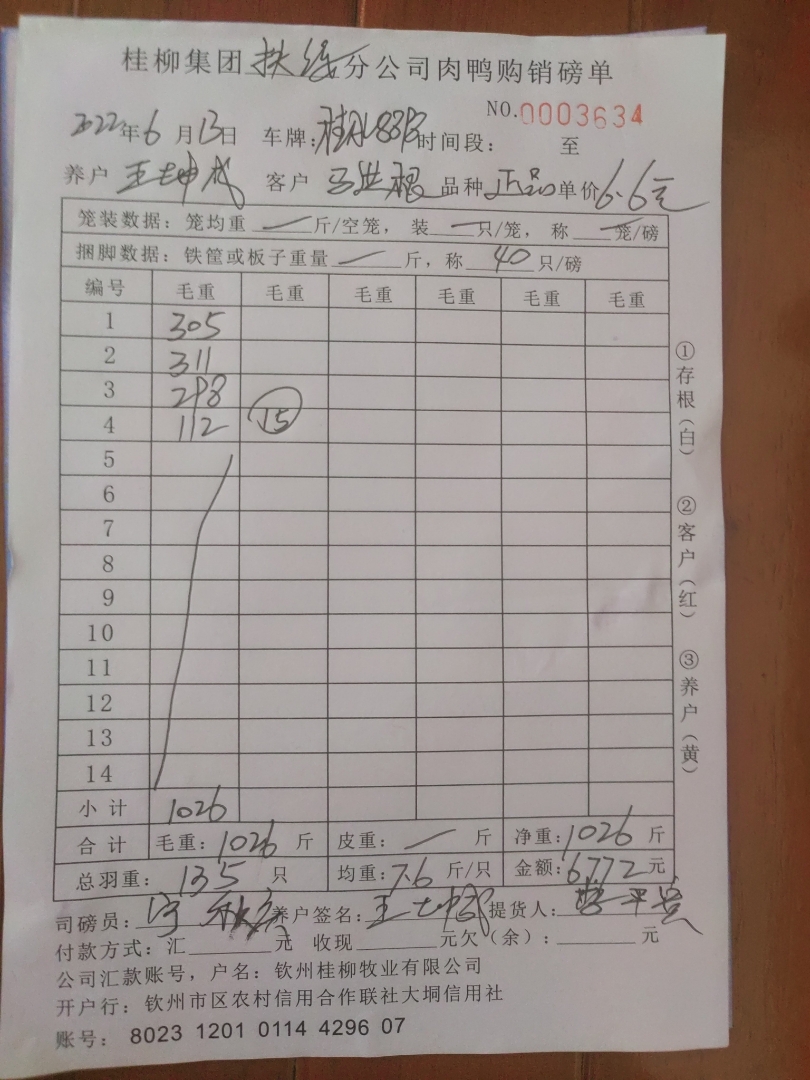 桂柳集团扶绥分公司肉鸭购销磅单
NO.0003634
2022年6月13日 车牌: 时间段: 至
养户 王坤武 客户 马世根 品种 正品 单价6.6元
笼装数据: 笼均重 — 斤/空笼, 装 — 只/笼, 称 — 笼/磅
捆脚数据: 铁筐或板子重量 — 斤, 称 40 只/磅
编号 毛重 毛重 毛重 毛重 毛重 毛重
1 305
2 311
3 298
4 112 15
5
6
7
8
9
10
11
12
13
14
小计 1026
合计 毛重: 1026 斤 皮重: — 斤 净重: 1026 斤
总羽重: 135 只 均重: 7.6 斤/只 金额: 6772 元
司磅员: 养户签名: 王坤武 提货人:
付款方式: 汇 元 收现 元欠(余): 元
公司汇款账号, 户名: 钦州桂柳牧业有限公司
开户行: 钦州市区农村信用合作联社大垌信用社
账号: 8023 1201 0114 4296 07
①存根(白)
②客户(红)
③养户(黄)